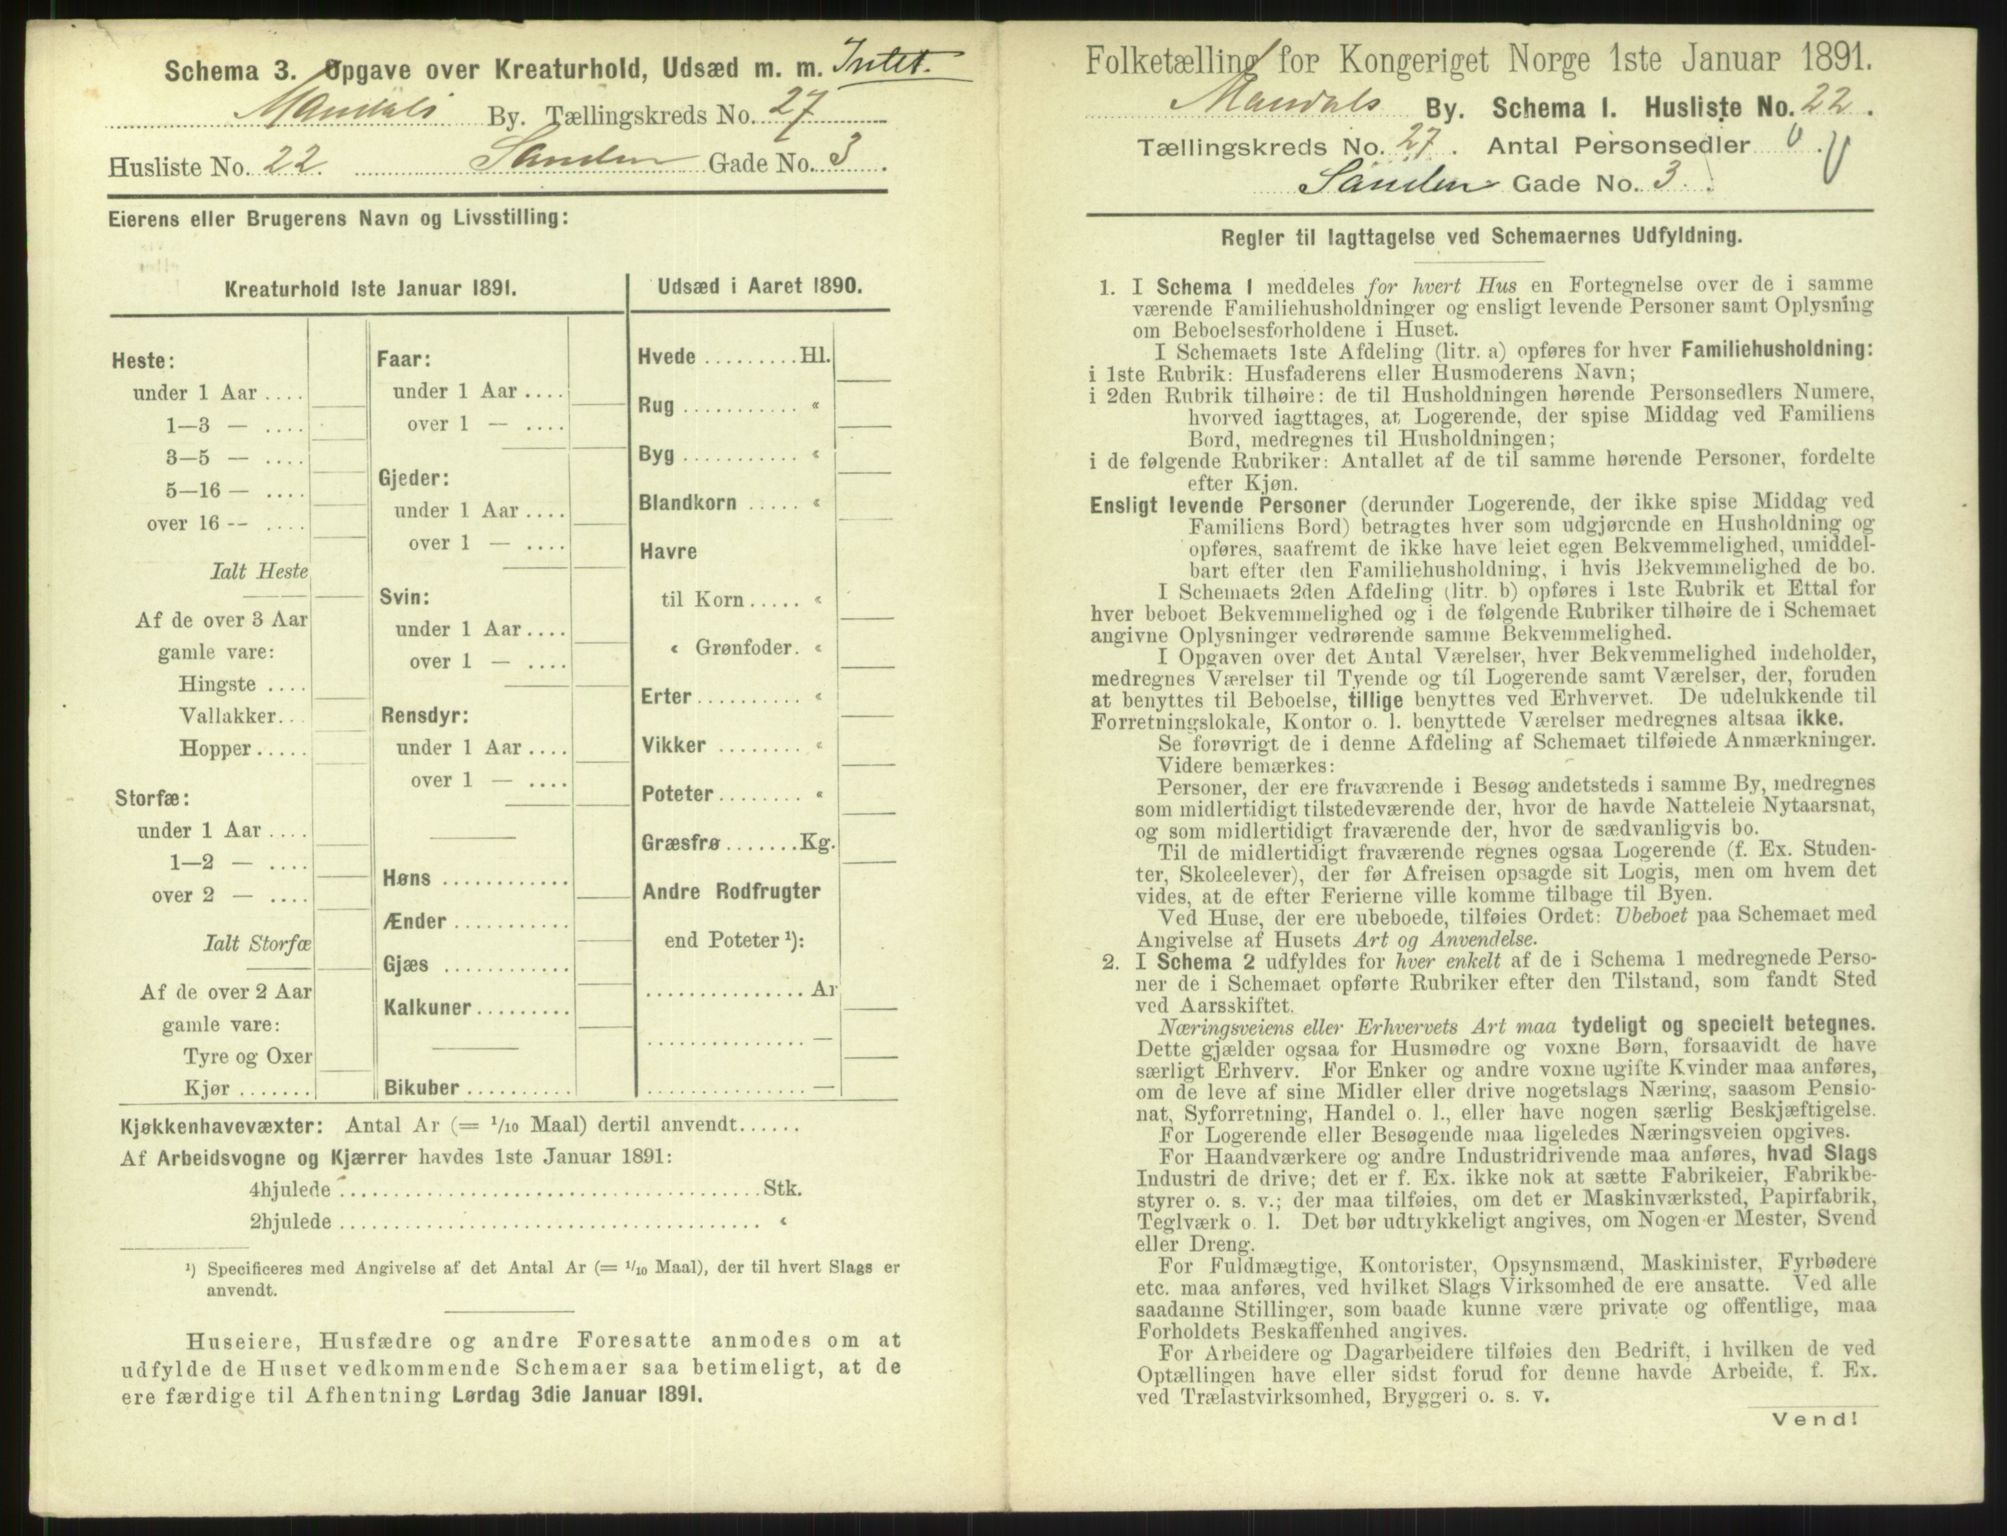 Schema 3. Opgave over Kreaturhold, Udsæd m. m. Intet.
Mandals By. Tællingskreds No. 27
Husliste No. 22. Sanden Gade No. 3.
Eierens eller Brugerens Navn og Livsstilling:
Kreaturhold 1ste Januar 1891.
Heste:
under 1 Aar ....
1—3 — ....
3—5 — ....
5—16 — ....
over 16 -- ....
Ialt Heste
Af de over 3 Aar
gamle vare:
Hingste ....
Vallakker...
Hopper.....
Storfæ:
under 1 Aar ....
1—2 — ....
over 2 — ....
Ialt Storfæ
Af de over 2 Aar
gamle vare:
Tyre og Oxer
Kjør .......
Faar:
under 1 Aar ....
over 1 — ....
Gjeder:
under 1 Aar ....
over 1 — ....
Svin:
under 1 Aar ....
over 1 — ....
Rensdyr:
under 1 Aar ....
over 1 — ....
Høns ............
Ænder ...........
Gjæs ............
Kalkuner.........
Bikuber ..........
Udsæd i Aaret 1890.
Hvede .........Hl.
Rug ........... «
Byg ........... «
Blandkorn ..... «
Havre
til Korn ..... «
« Grønfoder. «
Erter .......... «
Vikker ........ «
Poteter........ «
Græsfrø .......Kg.
Andre Rodfrugter
end Poteter ¹):
...............Ar
............... —
............... —
Kjøkkenhavevæxter: Antal Ar (= 1/10 Maal) dertil anvendt......
Af Arbeidsvogne og Kjærrer havdes 1ste Januar 1891:
4hjulede ........................................Stk.
2hjulede ........................................ «
¹) Specificeres med Angivelse af det Antal Ar (= 1/10 Maal), der til hvert Slags er
anvendt.
Huseiere, Husfædre og andre Foresatte anmodes om at
udfylde de Huset vedkommende Schemaer saa betimeligt, at de
ere færdige til Afhentning Lørdag 3die Januar 1891.
Folketælling for Kongeriget Norge 1ste Januar 1891.
Mandals By. Schema 1. Husliste No. 22.
Tællingskreds No. 27. Antal Personsedler 0.
Sanden Gade No. 3.
Regler til Iagttagelse ved Schemaernes Udfyldning.
1. I Schema 1 meddeles for hvert Hus en Fortegnelse over de i samme
værende Familiehusholdninger og ensligt levende Personer samt Oplysning
om Beboelsesforholdene i Huset.
I Schemaets 1ste Afdeling (litr. a) opføres for hver Familiehusholdning:
i 1ste Rubrik: Husfaderens eller Husmoderens Navn;
i 2den Rubrik tilhøire: de til Husholdningen hørende Personsedlers Numere,
hvorved iagttages, at Logerende, der spise Middag ved Familiens
Bord, medregnes til Husholdningen;
i de følgende Rubriker: Antallet af de til samme hørende Personer, fordelte
efter Kjøn.
Ensligt levende Personer (derunder Logerende, der ikke spise Middag ved
Familiens Bord) betragtes hver som udgjørende en Husholdning og
opføres, saafremt de ikke have leiet egen Bekvemmelighed, umiddel-
bart efter den Familiehusholdning, i hvis Bekvemmelighed de bo.
I Schemaets 2den Afdeling (litr. b) opføres i 1ste Rubrik et Ettal for
hver beboet Bekvemmelighed og i de følgende Rubriker tilhøire de i Schemaet
angivne Oplysninger vedrørende samme Bekvemmelighed.
I Opgaven over det Antal Værelser, hver Bekvemmelighed indeholder,
medregnes Værelser til Tyende og til Logerende samt Værelser, der, foruden
at benyttes til Beboelse, tillige benyttes ved Erhvervet. De udelukkende til
Forretningslokale, Kontor o. l. benyttede Værelser medregnes altsaa ikke.
Se forøvrigt de i denne Afdeling af Schemaet tilføiede Anmærkninger.
Videre bemærkes:
Personer, der ere fraværende i Besøg andetsteds i samme By, medregnes
som midlertidigt tilstedeværende der, hvor de havde Natteleie Nytaarsnat,
og som midlertidigt fraværende der, hvor de sædvanligvis bo.
Til de midlertidigt fraværende regnes ogsaa Logerende (f. Ex. Studen-
ter, Skoleelever), der før Afreisen opsagde sit Logis, men om hvem det
vides, at de efter Ferierne ville komme tilbage til Byen.
Ved Huse, der ere ubeboede, tilføies Ordet: Ubeboet paa Schemaet med
Angivelse af Husets Art og Anvendelse.
2. I Schema 2 udfyldes for hver enkelt af de i Schema 1 medregnede Perso-
ner de i Schemaet opførte Rubriker efter den Tilstand, som fandt Sted
ved Aarsskiftet.
Næringsveiens eller Erhvervets Art maa tydeligt og specielt betegnes.
Dette gjælder ogsaa for Husmødre og voxne Børn, forsaavidt de have
særligt Erhverv. For Enker og andre voxne ugifte Kvinder maa anføres,
om de leve af sine Midler eller drive nogetslags Næring, saasom Pensio-
nat, Syforretning, Handel o. l., eller have nogen særlig Beskjæftigelse.
For Logerende eller Besøgende maa ligeledes Næringsveien opgives.
For Haandværkere og andre Industridrivende maa anføres, hvad Slags
Industri de drive; det er f. Ex. ikke nok at sætte Fabrikeier, Fabrikbe-
styrer o. s. v.; der maa tilføies, om det er Maskinværksted, Papirfabrik,
Teglværk o. l. Det bør udtrykkeligt angives, om Nogen er Mester, Svend
eller Dreng.
For Fuldmægtige, Kontorister, Opsynsmænd, Maskinister, Fyrbødere
etc. maa anføres, ved hvilket Slags Virksomhed de ere ansatte. Ved alle
saadanne Stillinger, som baade kunne være private og offentlige, maa
Forholdets Beskaffenhed angives.
For Arbeidere og Dagarbeidere tilføies den Bedrift, i hvilken de ved
Optællingen have eller sidst forud for denne havde Arbeide, f. Ex.
ved Trælastvirksomhed, Bryggeri o. s. v.
Vend!